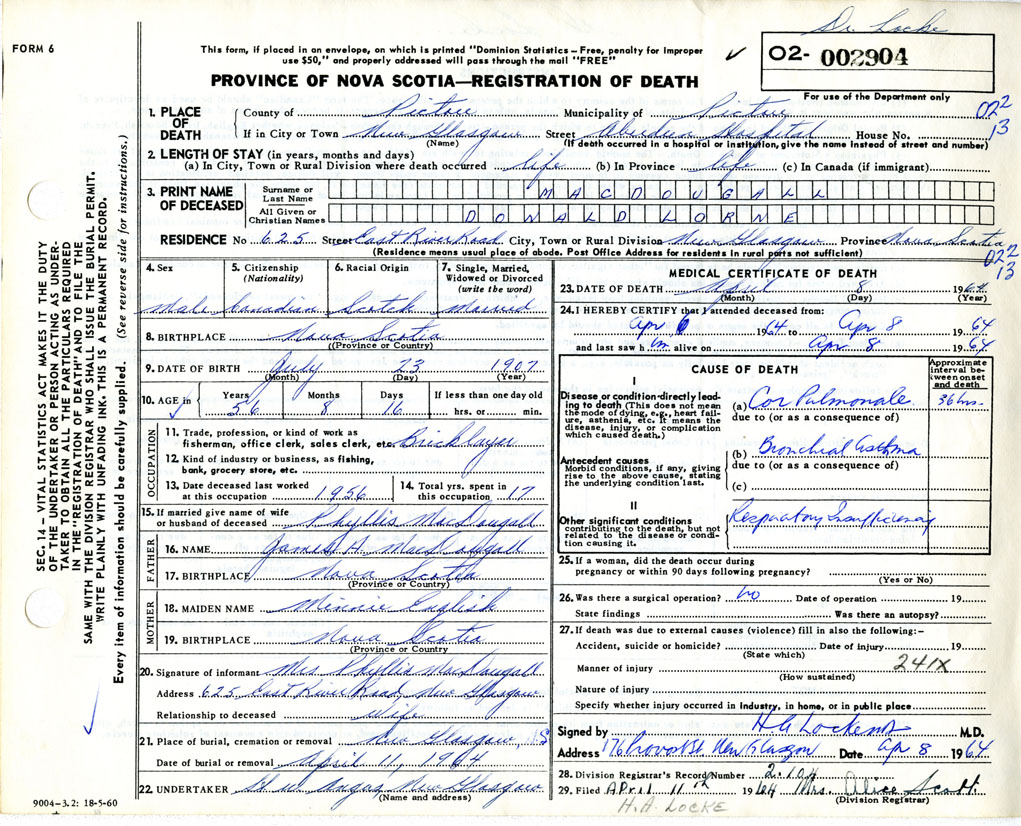 Dr. Locke
FORM 6
This form, if placed in an envelope, on which is printed "Dominion Statistics – Free, penalty for improper
use $50," and properly addressed will pass through the mail "FREE"
✓
02- 002904
PROVINCE OF NOVA SCOTIA—REGISTRATION OF DEATH
For use of the Department only
022
13
1. PLACE OF DEATH County of Pictou Municipality of Pictou
If in City or Town New Glasgow Street Aberdeen Hospital House No.
(Name) (If death occurred in a hospital or institution, give the name instead of street and number)
2. LENGTH OF STAY (in years, months and days)
(a) In City, Town or Rural Division where death occurred life (b) In Province life (c) In Canada (if immigrant)
3. PRINT NAME OF DECEASED Surname or Last Name MACDOUGALL
All Given or Christian Names DONALD LORNE
RESIDENCE No 625 Street East River Road City, Town or Rural Division New Glasgow Province Nova Scotia
(Residence means usual place of abode. Post Office Address for residents in rural parts not sufficient)
022
13
4. Sex 5. Citizenship (Nationality) 6. Racial Origin 7. Single, Married, Widowed or Divorced (write the word)
Male Canadian Scotch Married
8. BIRTHPLACE Nova Scotia
(Province or Country)
9. DATE OF BIRTH July 23 1907
(Month) (Day) (Year)
10. AGE in Years Months Days If less than one day old
✓ 56 8 16 hrs. or min.
OCCUPATION
11. Trade, profession, or kind of work as
fisherman, office clerk, sales clerk, etc. Bricklayer
12. Kind of industry or business, as fishing,
bank, grocery store, etc.
13. Date deceased last worked at this occupation 1956 14. Total yrs. spent in this occupation 17
15. If married give name of wife
or husband of deceased Phyllis MacDougall
FATHER
16. NAME James A. MacDougall
17. BIRTHPLACE Nova Scotia
(Province or Country)
MOTHER
18. MAIDEN NAME Minnie English
19. BIRTHPLACE Nova Scotia
(Province or Country
20. Signature of informant Mrs Phyllis MacDougall
Address 625 East River Road, New Glasgow
Relationship to deceased Wife
21. Place of burial, cremation or removal New Glasgow, NS
Date of burial or removal April 11, 1964
22. UNDERTAKER H. W. Angus New Glasgow
(Name and address)
9004–3.2: 18-5-60
SEC. 14 – VITAL STATISTICS ACT MAKES IT THE DUTY
OF THE UNDERTAKER OR PERSON ACTING AS UNDER-
TAKER TO OBTAIN ALL THE PARTICULARS REQUIRED
IN THE "REGISTRATION OF DEATH" AND TO FILE THE
SAME WITH THE DIVISION REGISTRAR WHO SHALL ISSUE THE BURIAL PERMIT.
WRITE PLAINLY WITH UNFADING INK. THIS IS A PERMANENT RECORD.
Every item of information should be carefully supplied. (See reverse side for instructions.)
MEDICAL CERTIFICATE OF DEATH
23. DATE OF DEATH April 8 1964
(Month) (Day) (Year)
24. I HEREBY CERTIFY that I attended deceased from:
Apr 6 1964 to Apr 8 1964
and last saw him alive on Apr 8 1964
CAUSE OF DEATH
Approximate interval between onset and death
I
Disease or condition directly lead-
ing to death (This does not mean
the mode of dying, e.g., heart fail-
ure, asthenia, etc. It means the
disease, injury, or complication
which caused death.)
(a) Cor Pulmonale 36 hrs.
due to (or as a consequence of)
Antecedent causes
Morbid conditions, if any, giving
rise to the above cause, stating
the underlying condition last.
(b) Bronchial Asthma
due to (or as a consequence of)
(c)
II
Other significant conditions
contributing to the death, but not
related to the disease or condi-
tion causing it.
Respiratory Insufficiency
25. If a woman, did the death occur during
pregnancy or within 90 days following pregnancy?
(Yes or No)
26. Was there a surgical operation? no Date of operation 19
State findings Was there an autopsy?
27. If death was due to external causes (violence) fill in also the following:–
Accident, suicide or homicide? Date of injury 19
(State which) 241X
Manner of injury
(How sustained)
Nature of injury
Specify whether injury occurred in industry, in home, or in public place
Signed by H A Locke M.D.
Address 176 Provost St. New Glasgow Date Apr 8 1964
28. Division Registrar's Record Number 2-104
29. Filed April 11th 1964 Mrs. Alice Scott
(Division Registrar)
H.A. LOCKE